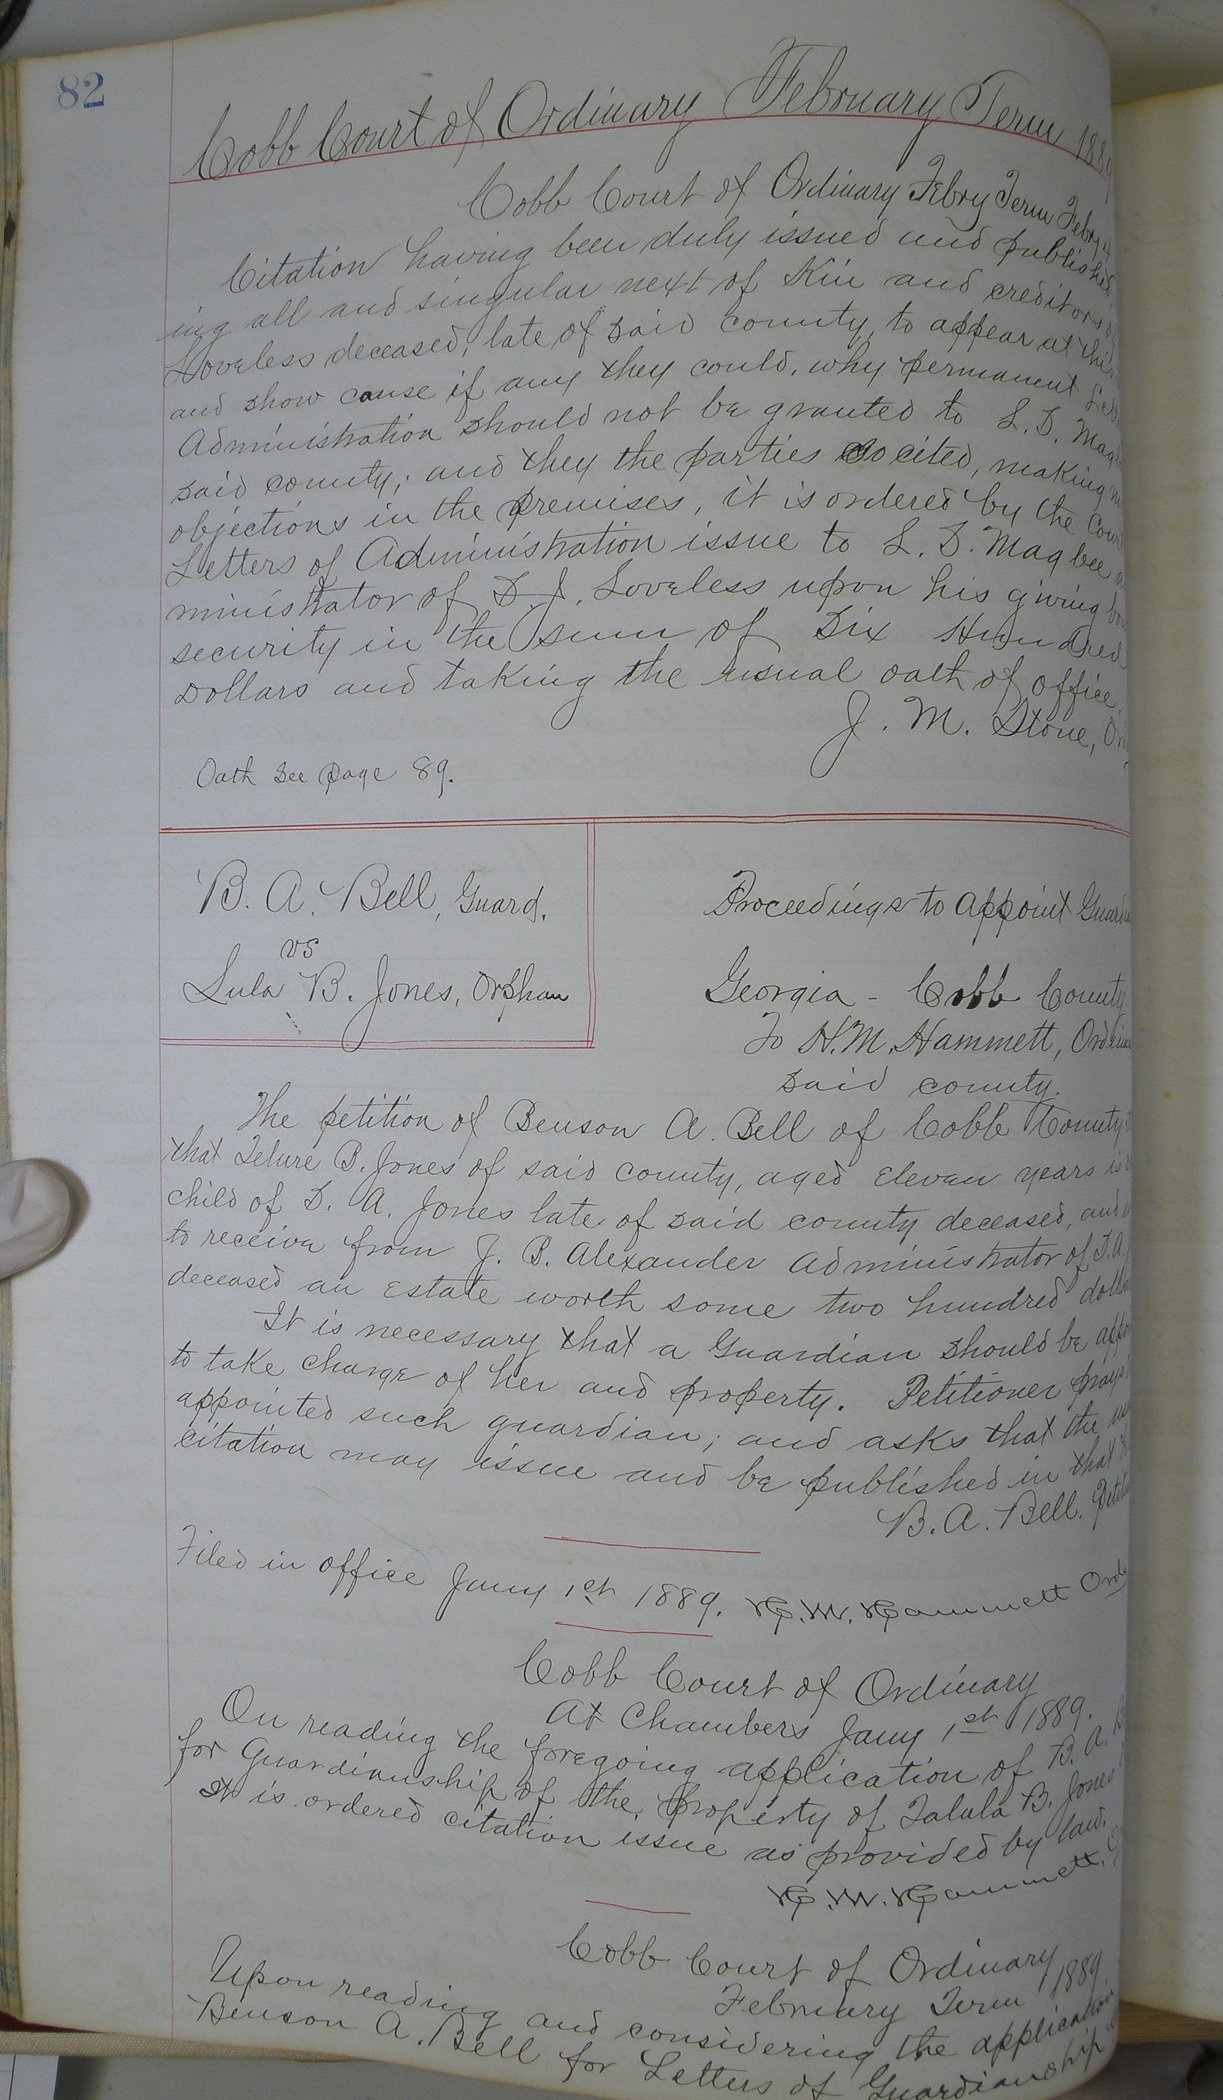 82
Cobb Court of Ordinary February Term 188
Cobb Court of Ordinary Febry Term Febry
Citation having been duly issued and published
ing all and singular next of Kin and creditors
Loveless deceased, late of said county, to appear at this
and show cause if any they could, why permanent
Administration should not be granted to L. D.
said county; and they the parties so cited, making
objections in the premises, it is ordered by the
Letters of Administration issue to L. D. Magbee
ministrator of D. J. Loveless upon his giving
security in the sum of Six Hundred
Dollars and taking the usual oath of office.
J. M. Stone,
Oath See page 89.
B. A. Bell, Guard.
vs
Lula B. Jones, Orphan
Proceedings to appoint
Georgia - Cobb County
To H. M. Hammett,
said county.
The petition of Benson A. Bell of Cobb County
that B. Jones of said county, aged Eleven years is
child of A. Jones late of said county, deceased, and
to receive from J. B. Alexander Administrator of
deceased an Estate worth some two hundred
It is necessary that a Guardian should be
to take charge of her and property. Petitioner prays
appointed such guardian; and asks that the
citation may issue and be published in that
B. A. Bell.
Filed in office Jany 1st 1889. H. M. Hammett
Cobb Court of Ordinary
At Chambers Jany 1st 1889.
On reading the foregoing application of B. A.
for Guardianship of the property of Talula B. Jones
It is ordered citation issue as provided by law.
H. M. Hammett,
Cobb Court of Ordinary
February Term 1889
Upon reading and considering the application
Benson A. Bell for Letters of Guardianship